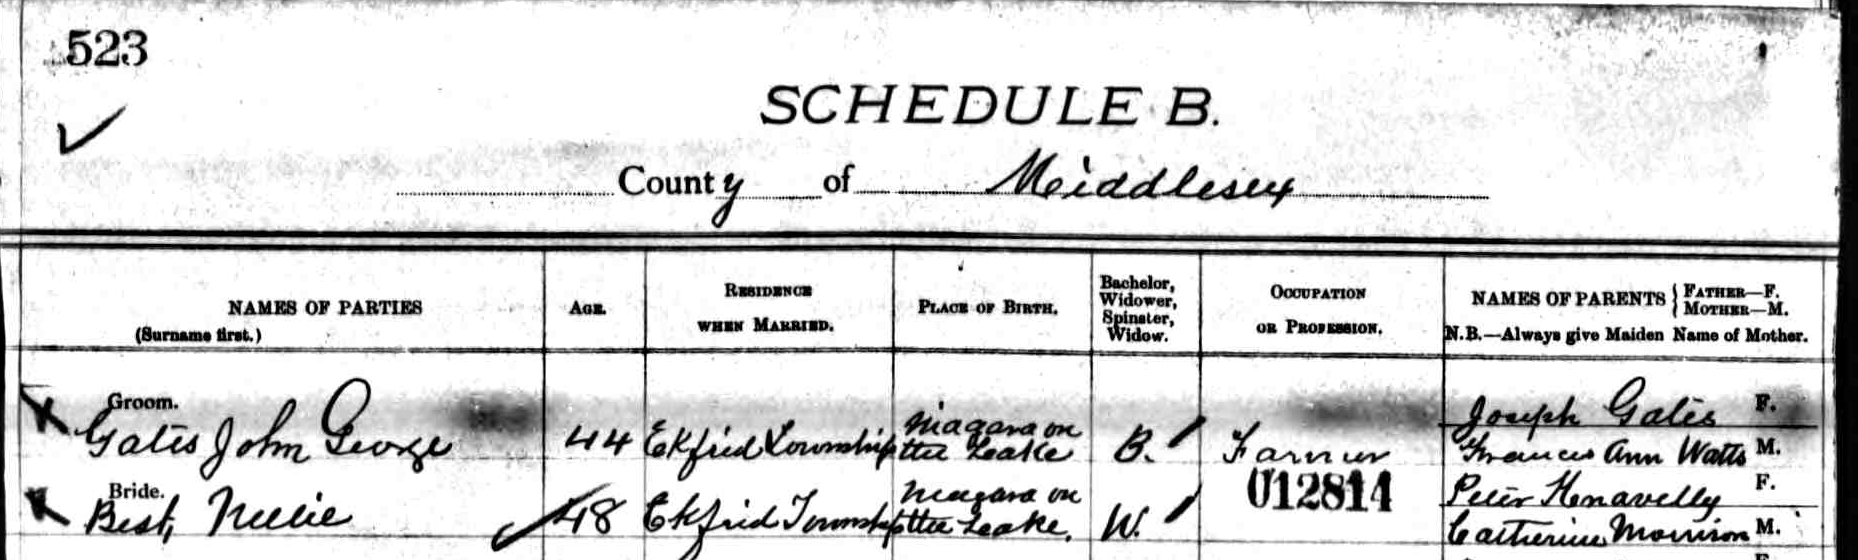 523
SCHEDULE B.
County of Middlesex
NAMES OF PARTIES
(Surname first.)
AGE.
RESIDENCE
WHEN MARRIED.
PLACE OF BIRTH.
Bachelor,
Widower,
Spinster,
Widow.
OCCUPATION
OR PROFESSION.
NAMES OF PARENTS { FATHER—F.
MOTHER—M.
N.B.—Always give Maiden Name of Mother.
Groom.
Gates John George 44 Ekfrid Township Niagara on
the Leake B. Farmer
Joseph Gates F.
Frances Ann Watts M.
Bride.
Best, Nellie 48 Ekfrid Township Niagara on
the Leake. W.
012814
Peter F.
Catherine Morrison M.